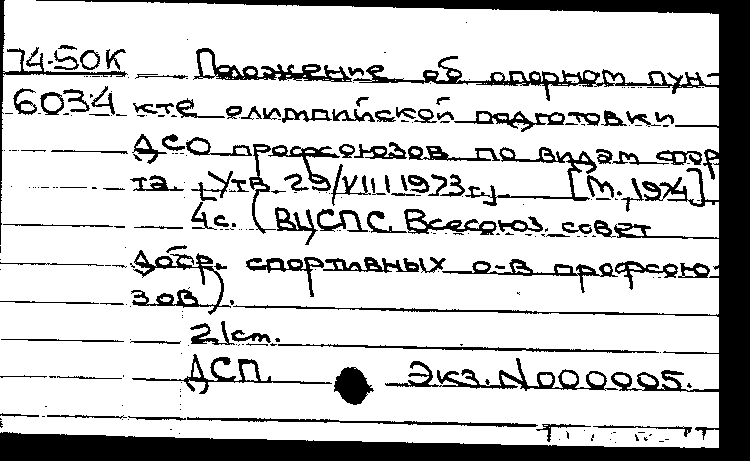 74-50К Положение об опорном пун-
6034 кте олимпийской подготовки
ДСО профсоюзов по видам спор
та. [Утв. 29/VIII 1973 г.]. [М., 1974]
4 с. (ВЦСПС. Всесоюз. совет
добр. спортивных о-в профсою-
зов).
21 см.
ДСП. Экз. N 000005.